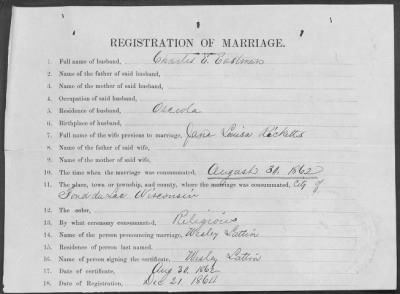 REGISTRATION OF MARRIAGE.
1. Full name of husband, Charles E. Eastman
2. Name of the father of said husband,
3. Name of the mother of said husband,
4. Occupation of said husband,
5. Residence of husband, Osceola
6. Birthplace of husband,
7. Full name of wife previous to marriage, Jane Louisa Ricketts
8. Name of the father of said wife,
9. Name of the mother of said wife,
10. The time when the marriage was consummated, August 30, 1862
11. The place, town or township, and county, where the marriage was consummated, City of
Fond du Lac Wisconsin
12. The color,
13. By what ceremony consummated, Religious
14. Name of the person pronouncing marriage, Wesley Lattin
15. Residence of person last named.
16. Name of person signing the certificate, Wesley Lattin
17. Date of certificate, Aug 30. 1862
18. Date of Registration, Dec 21. 1864